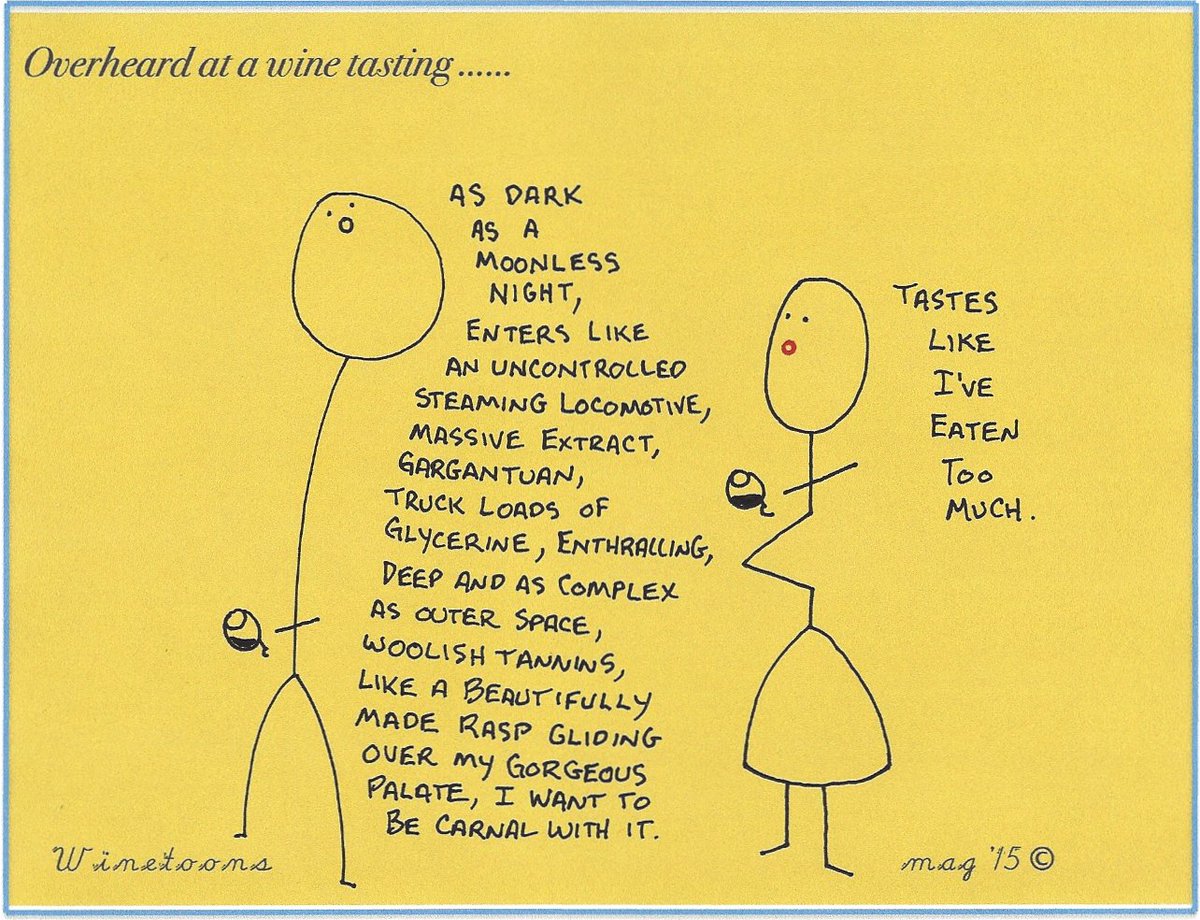 Overheard at a wine tasting ......
AS DARK
AS A
MOONLESS
NIGHT,
ENTERS LIKE
AN UNCONTROLLED
STEAMING LOCOMOTIVE,
MASSIVE EXTRACT,
GARGANTUAN,
TRUCK LOADS OF
GLYCERINE, ENTHRALLING,
DEEP AND AS COMPLEX
AS OUTER SPACE,
WOOLISH TANNINS,
LIKE A BEAUTIFULLY
MADE RASP GLIDING
OVER MY GORGEOUS
PALATE, I WANT TO
BE CARNAL WITH IT.
TASTES
LIKE
I'VE
EATEN
TOO
MUCH.
Winetoons
mag '15 ©